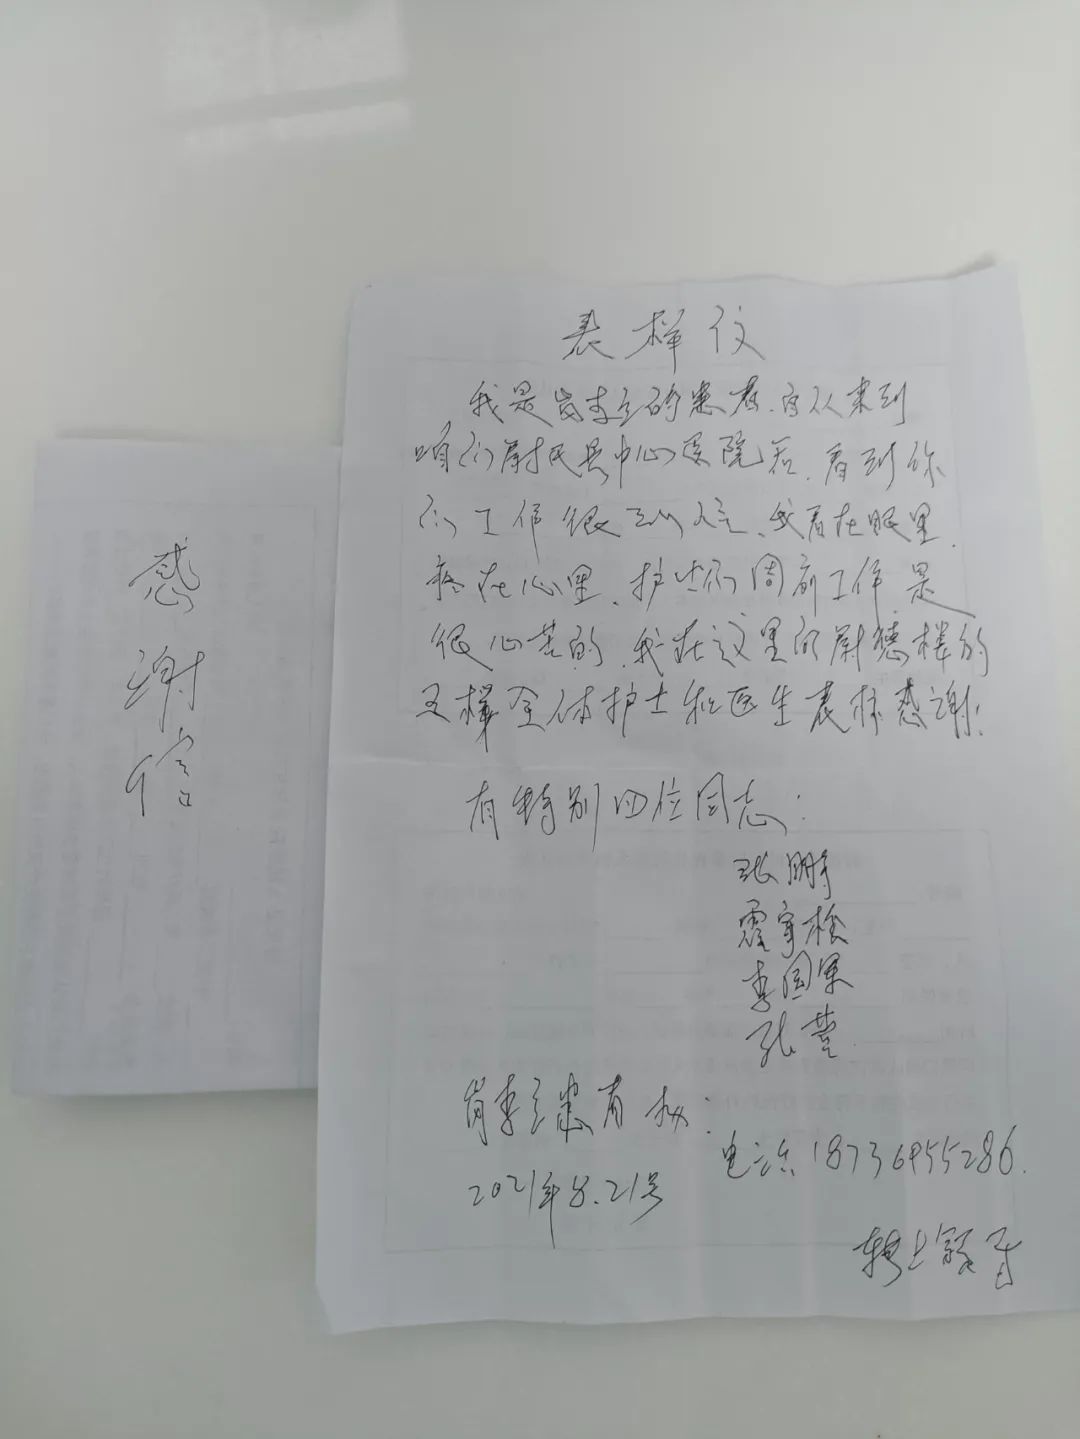 感谢信
表样仪
我是肖李立的患者.自从来到
咱们尉氏县中心医院后.看到你
们工作很认真.我看在眼里.
疼在心里.护士们周前工作是
很心苦的.我在这里向尉德楼的
又楼全体护士和医生表标感谢:
有特别四位同志:
张鹏
霍
李国果
张莹
肖李立患者
电话18736955286.
2021年8.21号
上